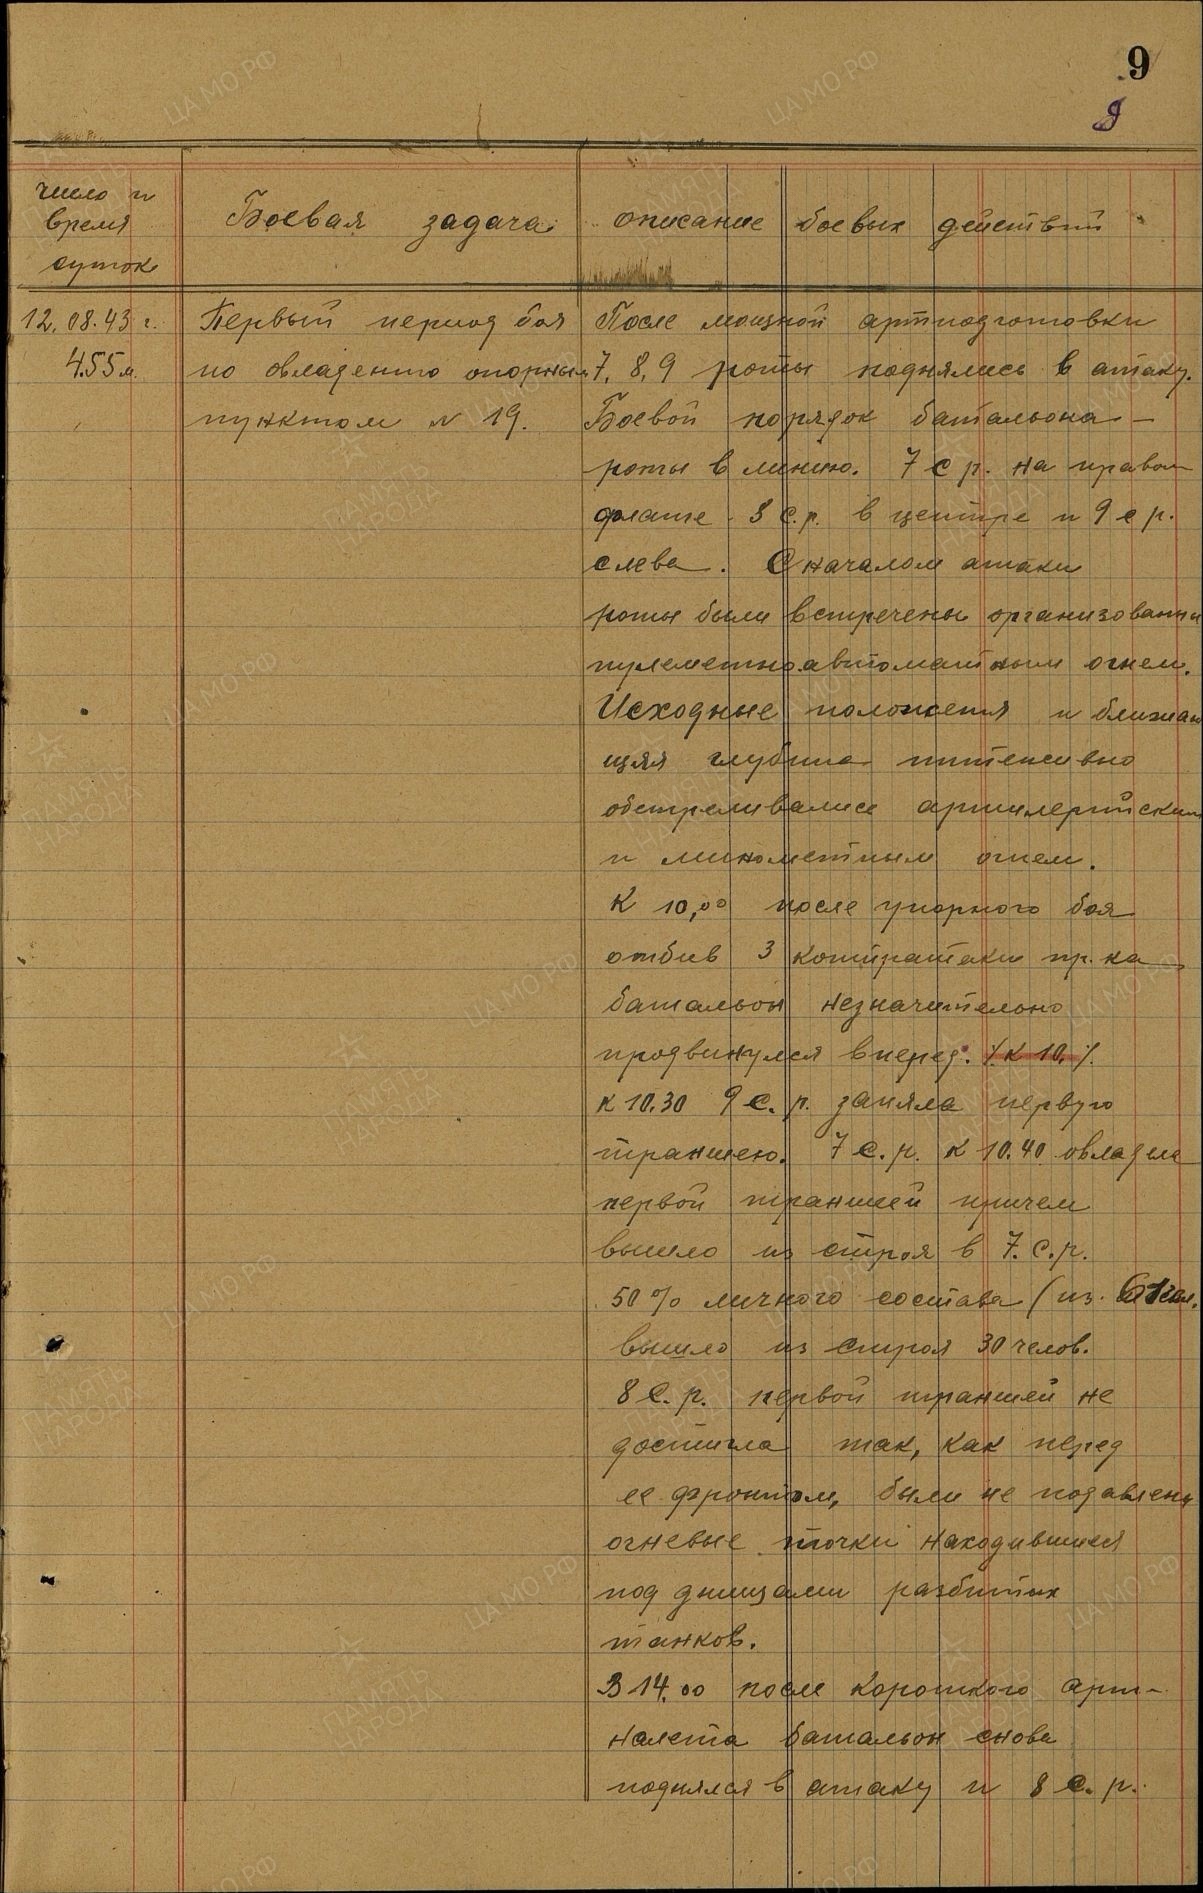 9
9
число и
время
суток
Боевая задача
описание боевых действий
12.08.43 г.
4.55 м.
Первый период боя
по овладению опорным
пунктом № 19.
После мощной артподготовки
7, 8, 9 роты поднялись в атаку.
Боевой порядок батальона —
роты в линию. 7 с р. на правом
фланге 8 с.р. в центре и 9 с р.
слева. С началом атаки
роты были встречены организованны
пулеметно-автоматным огнем.
Исходные положения и ближаю
щяя глубина интенсивно
обстреливались артилерийским
и минометным огнем.
К 10,00 после упорного боя
отбив 3 контратаки пр-ка
батальон незначительно
продвинулся вперед. К 10.
к 10.30 9 с. р. заняла первую
траншею. 7 с.р. к 10.40 овладела
первой траншеей причем
вышло из строя в 7. с.р.
50 % личного состава (из 61 чел.
вышло из строя 30 челов.
8 с. р. первой траншеи не
достигла так, как перед
ее фронтом, были не подавлены
огневые точки находившиеся
под днищами разбитых
танков.
В 14.00 после короткого арт-
налета батальон снова
поднялся в атаку и 8 с. р.
ЦА МО РФ
ПАМЯТЬ
НАРОДА